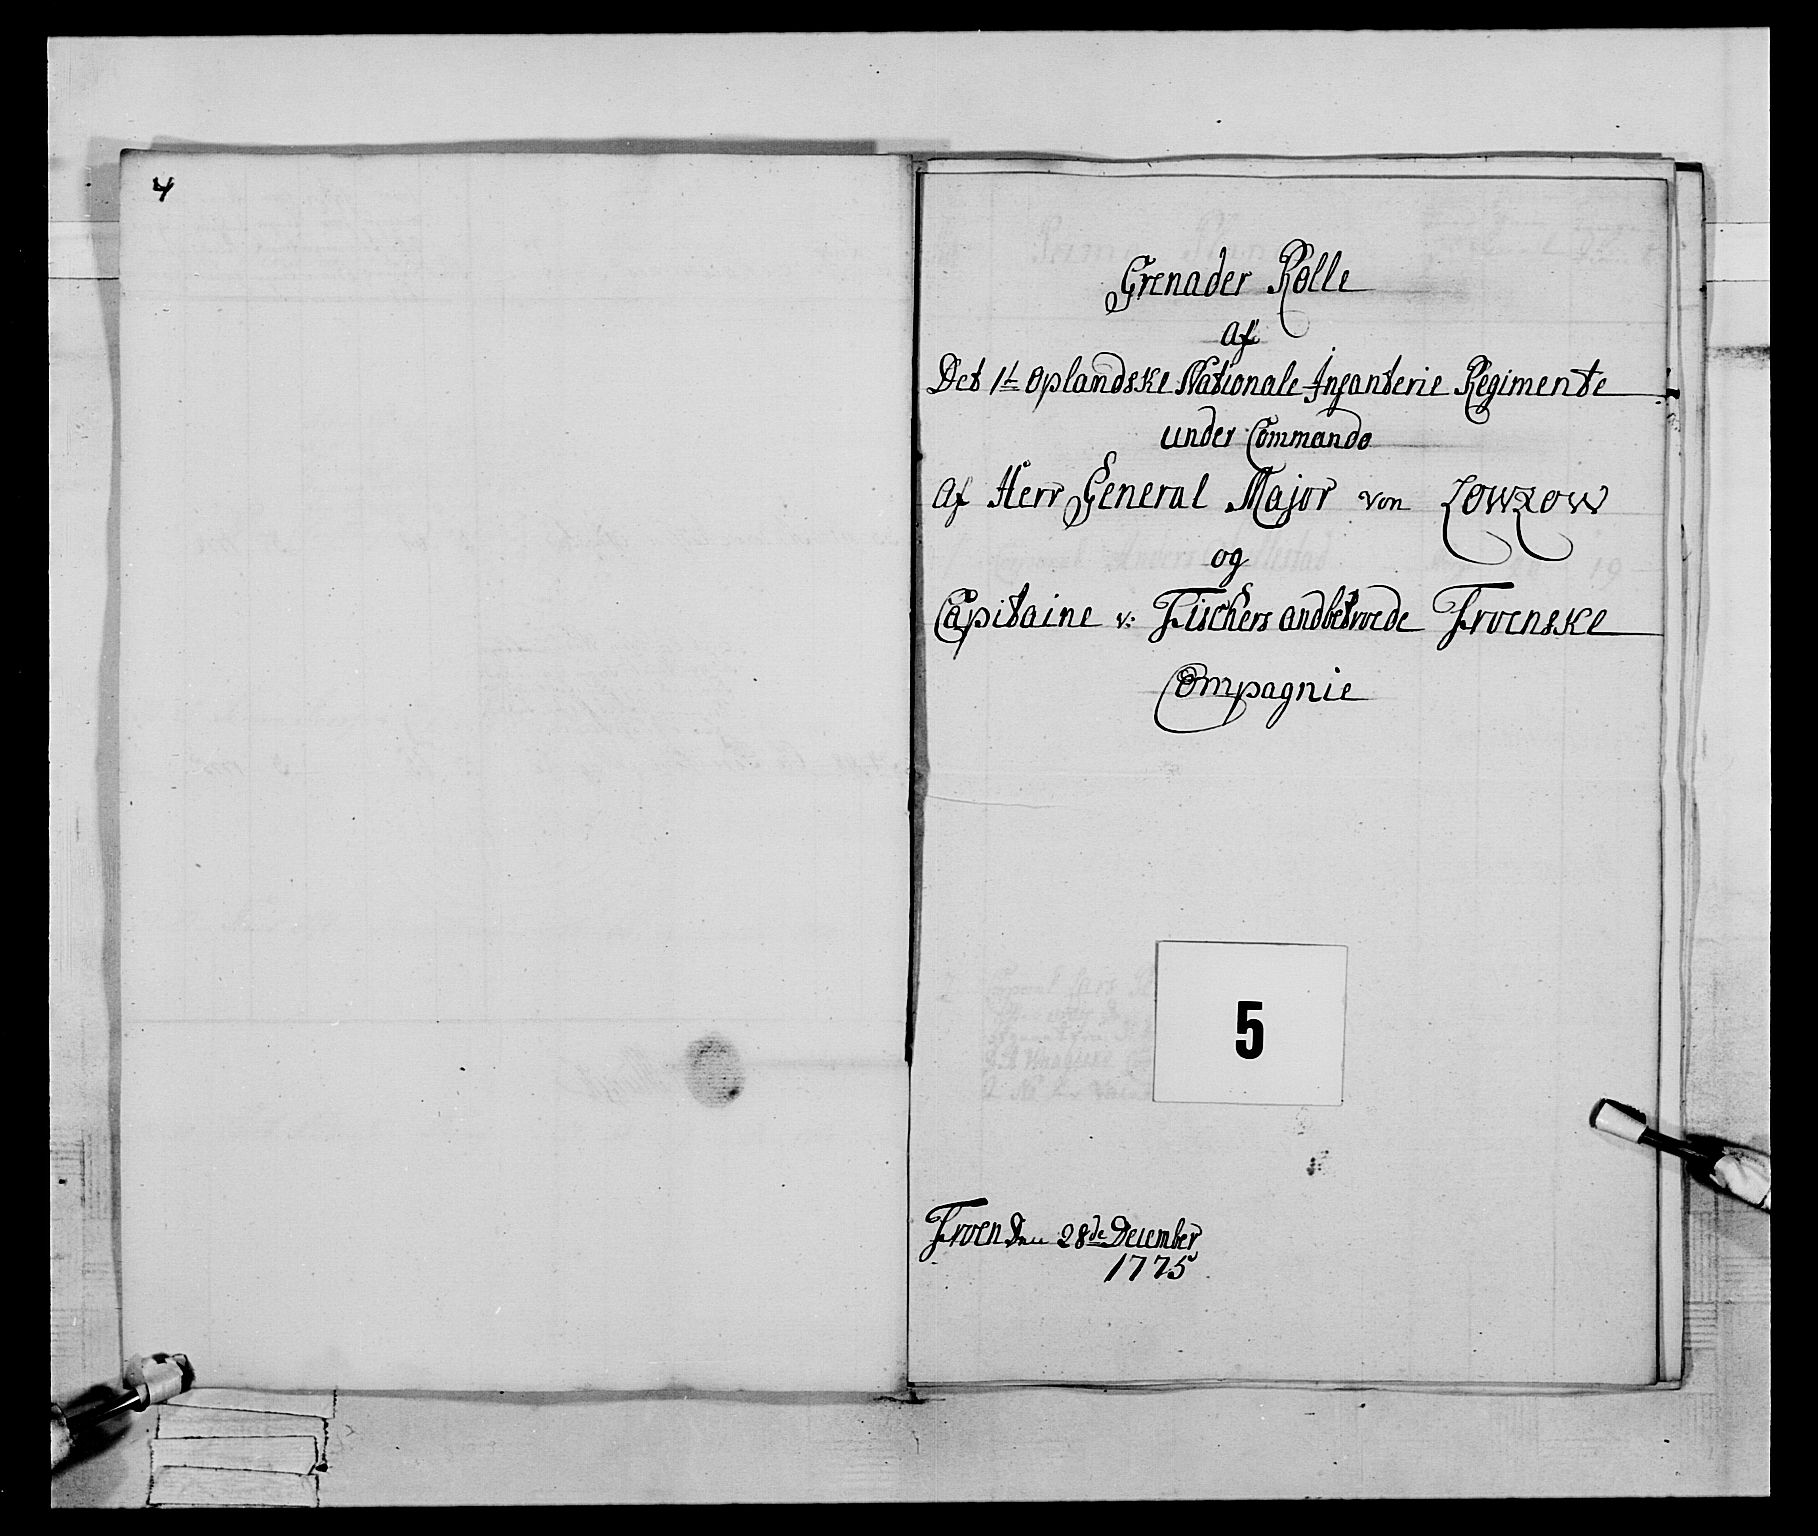 4
Grenader Rolle
Af
Det 1t Oplandske Nationale Infanterie Regimente
under Commando
Af Herr General Major von Lowzow
og
Capitaine v: Fischers andbetroede Froenske
Compagnie
5
Froen Den 28de December
1775